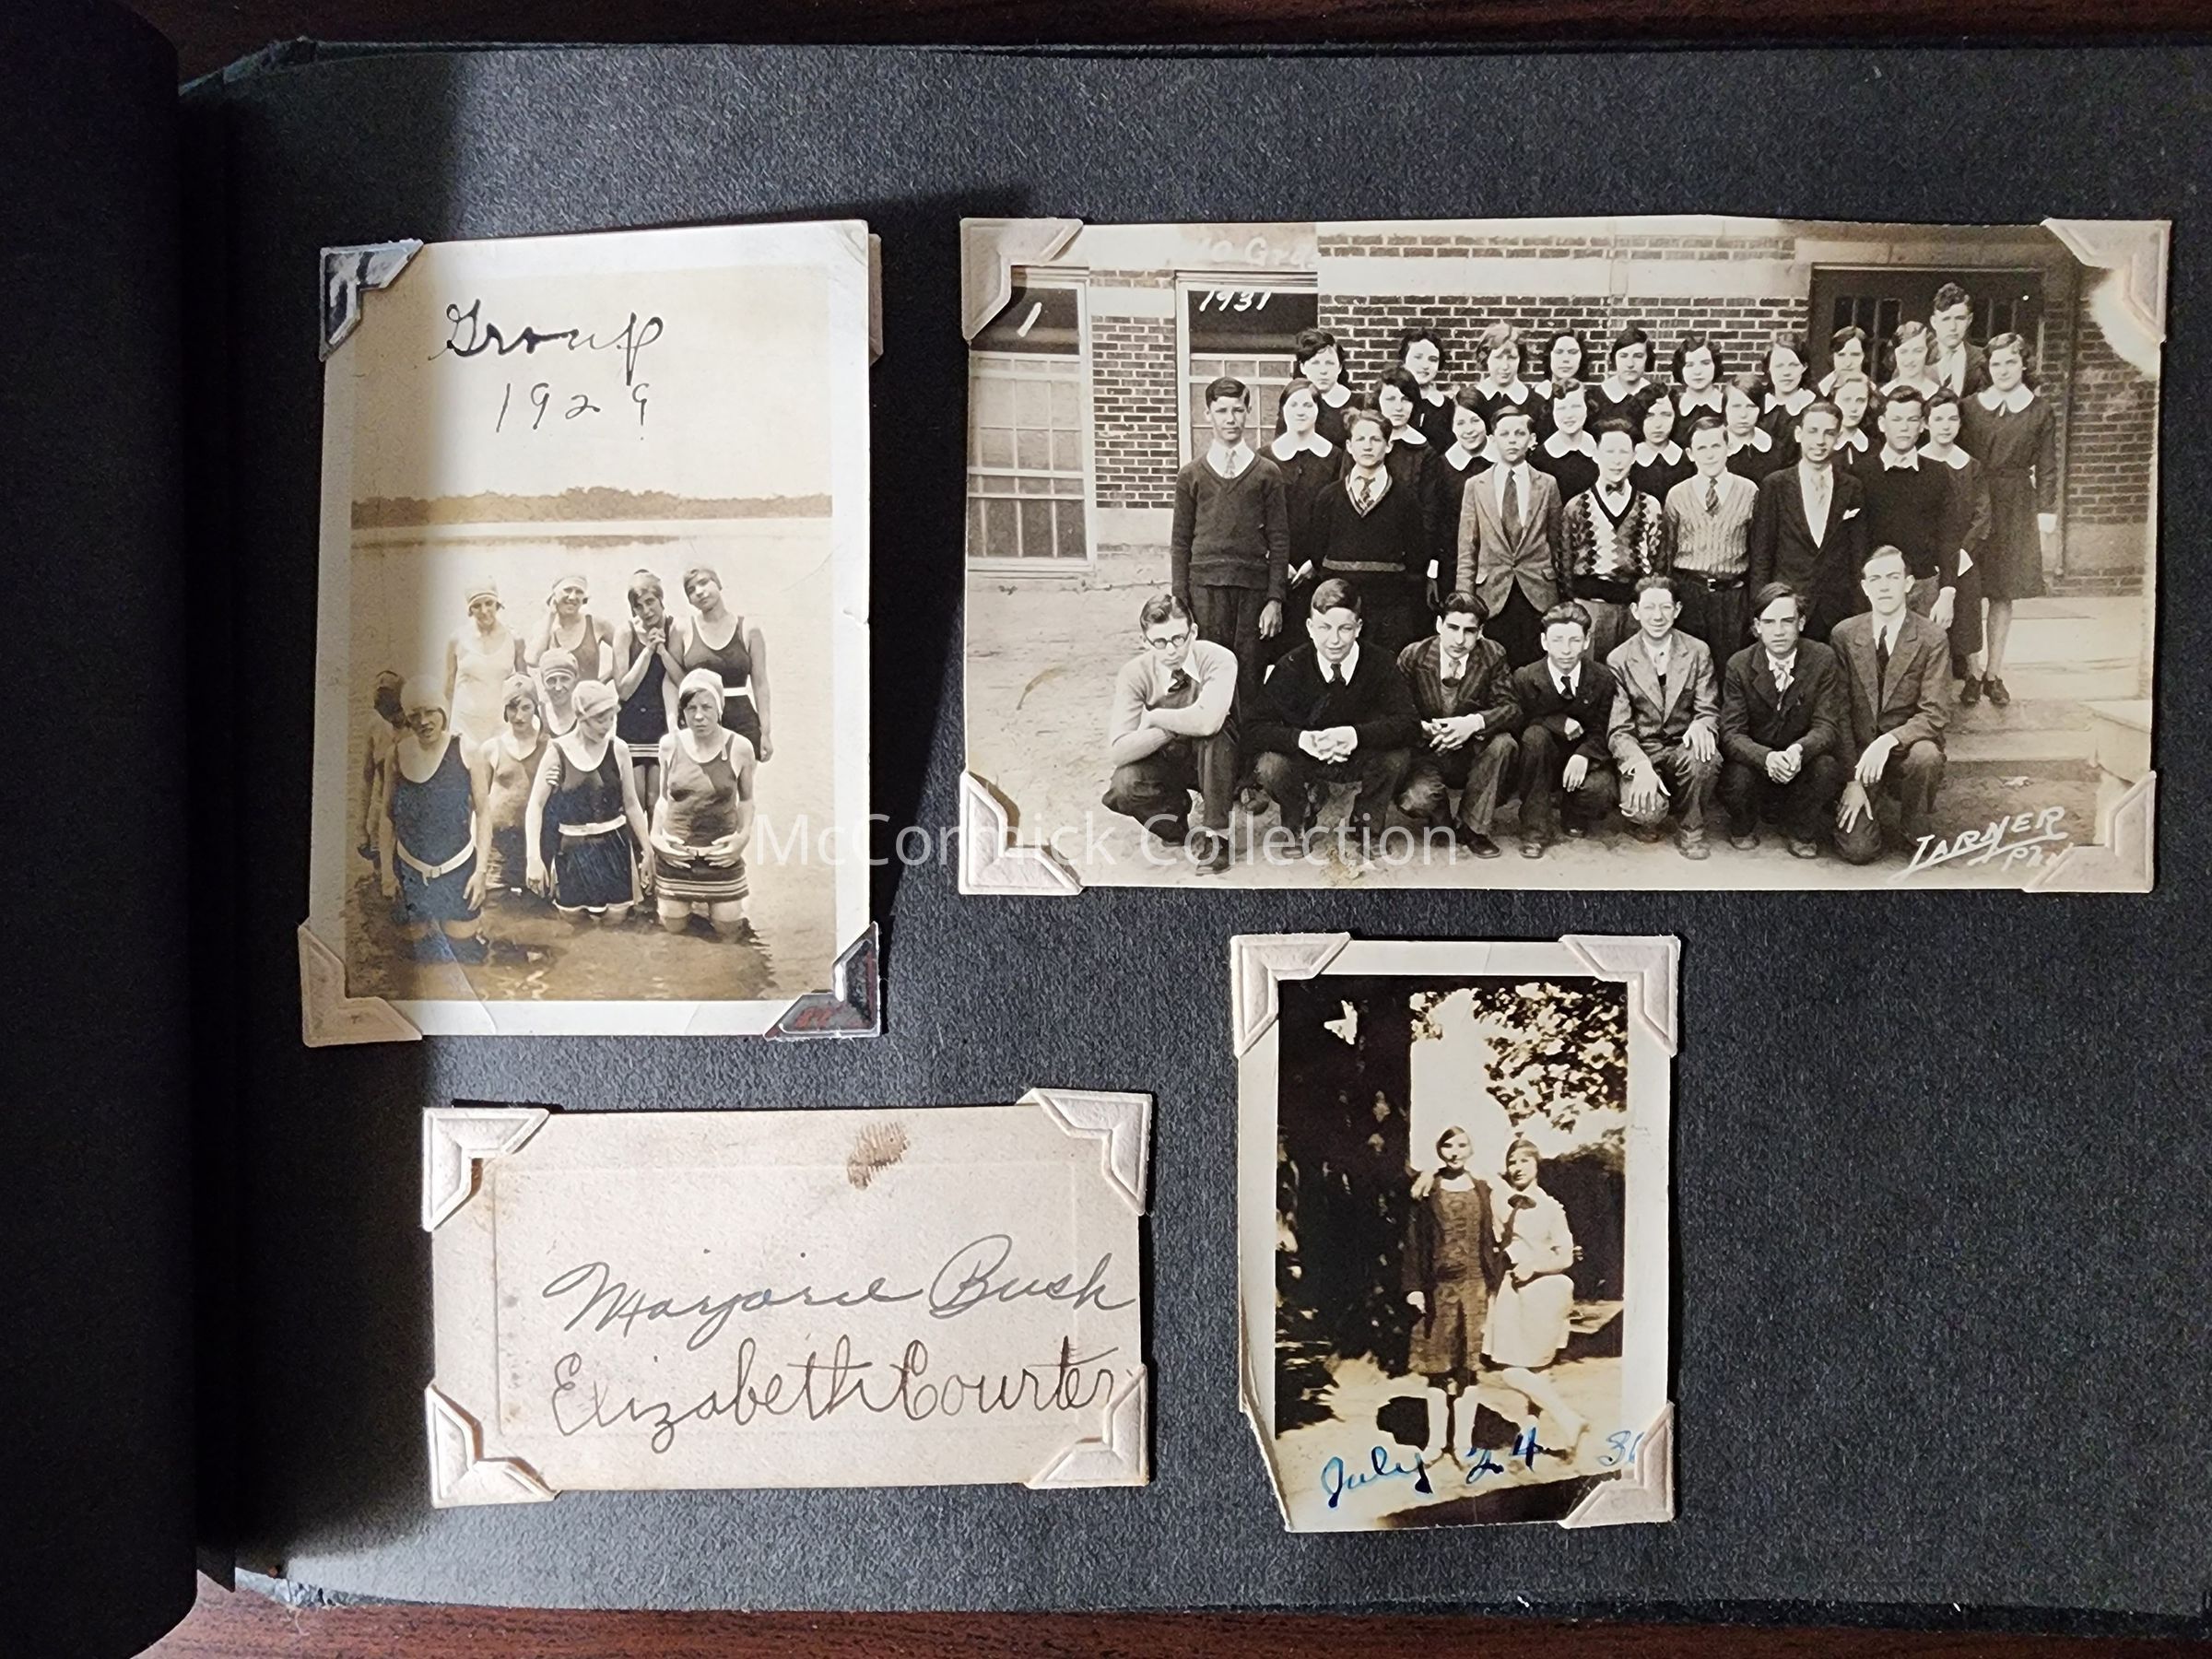 Group
1929
1
1931
LARNER
McCormick Collection
Marjorie Bush
Elizabeth Courter
July 24